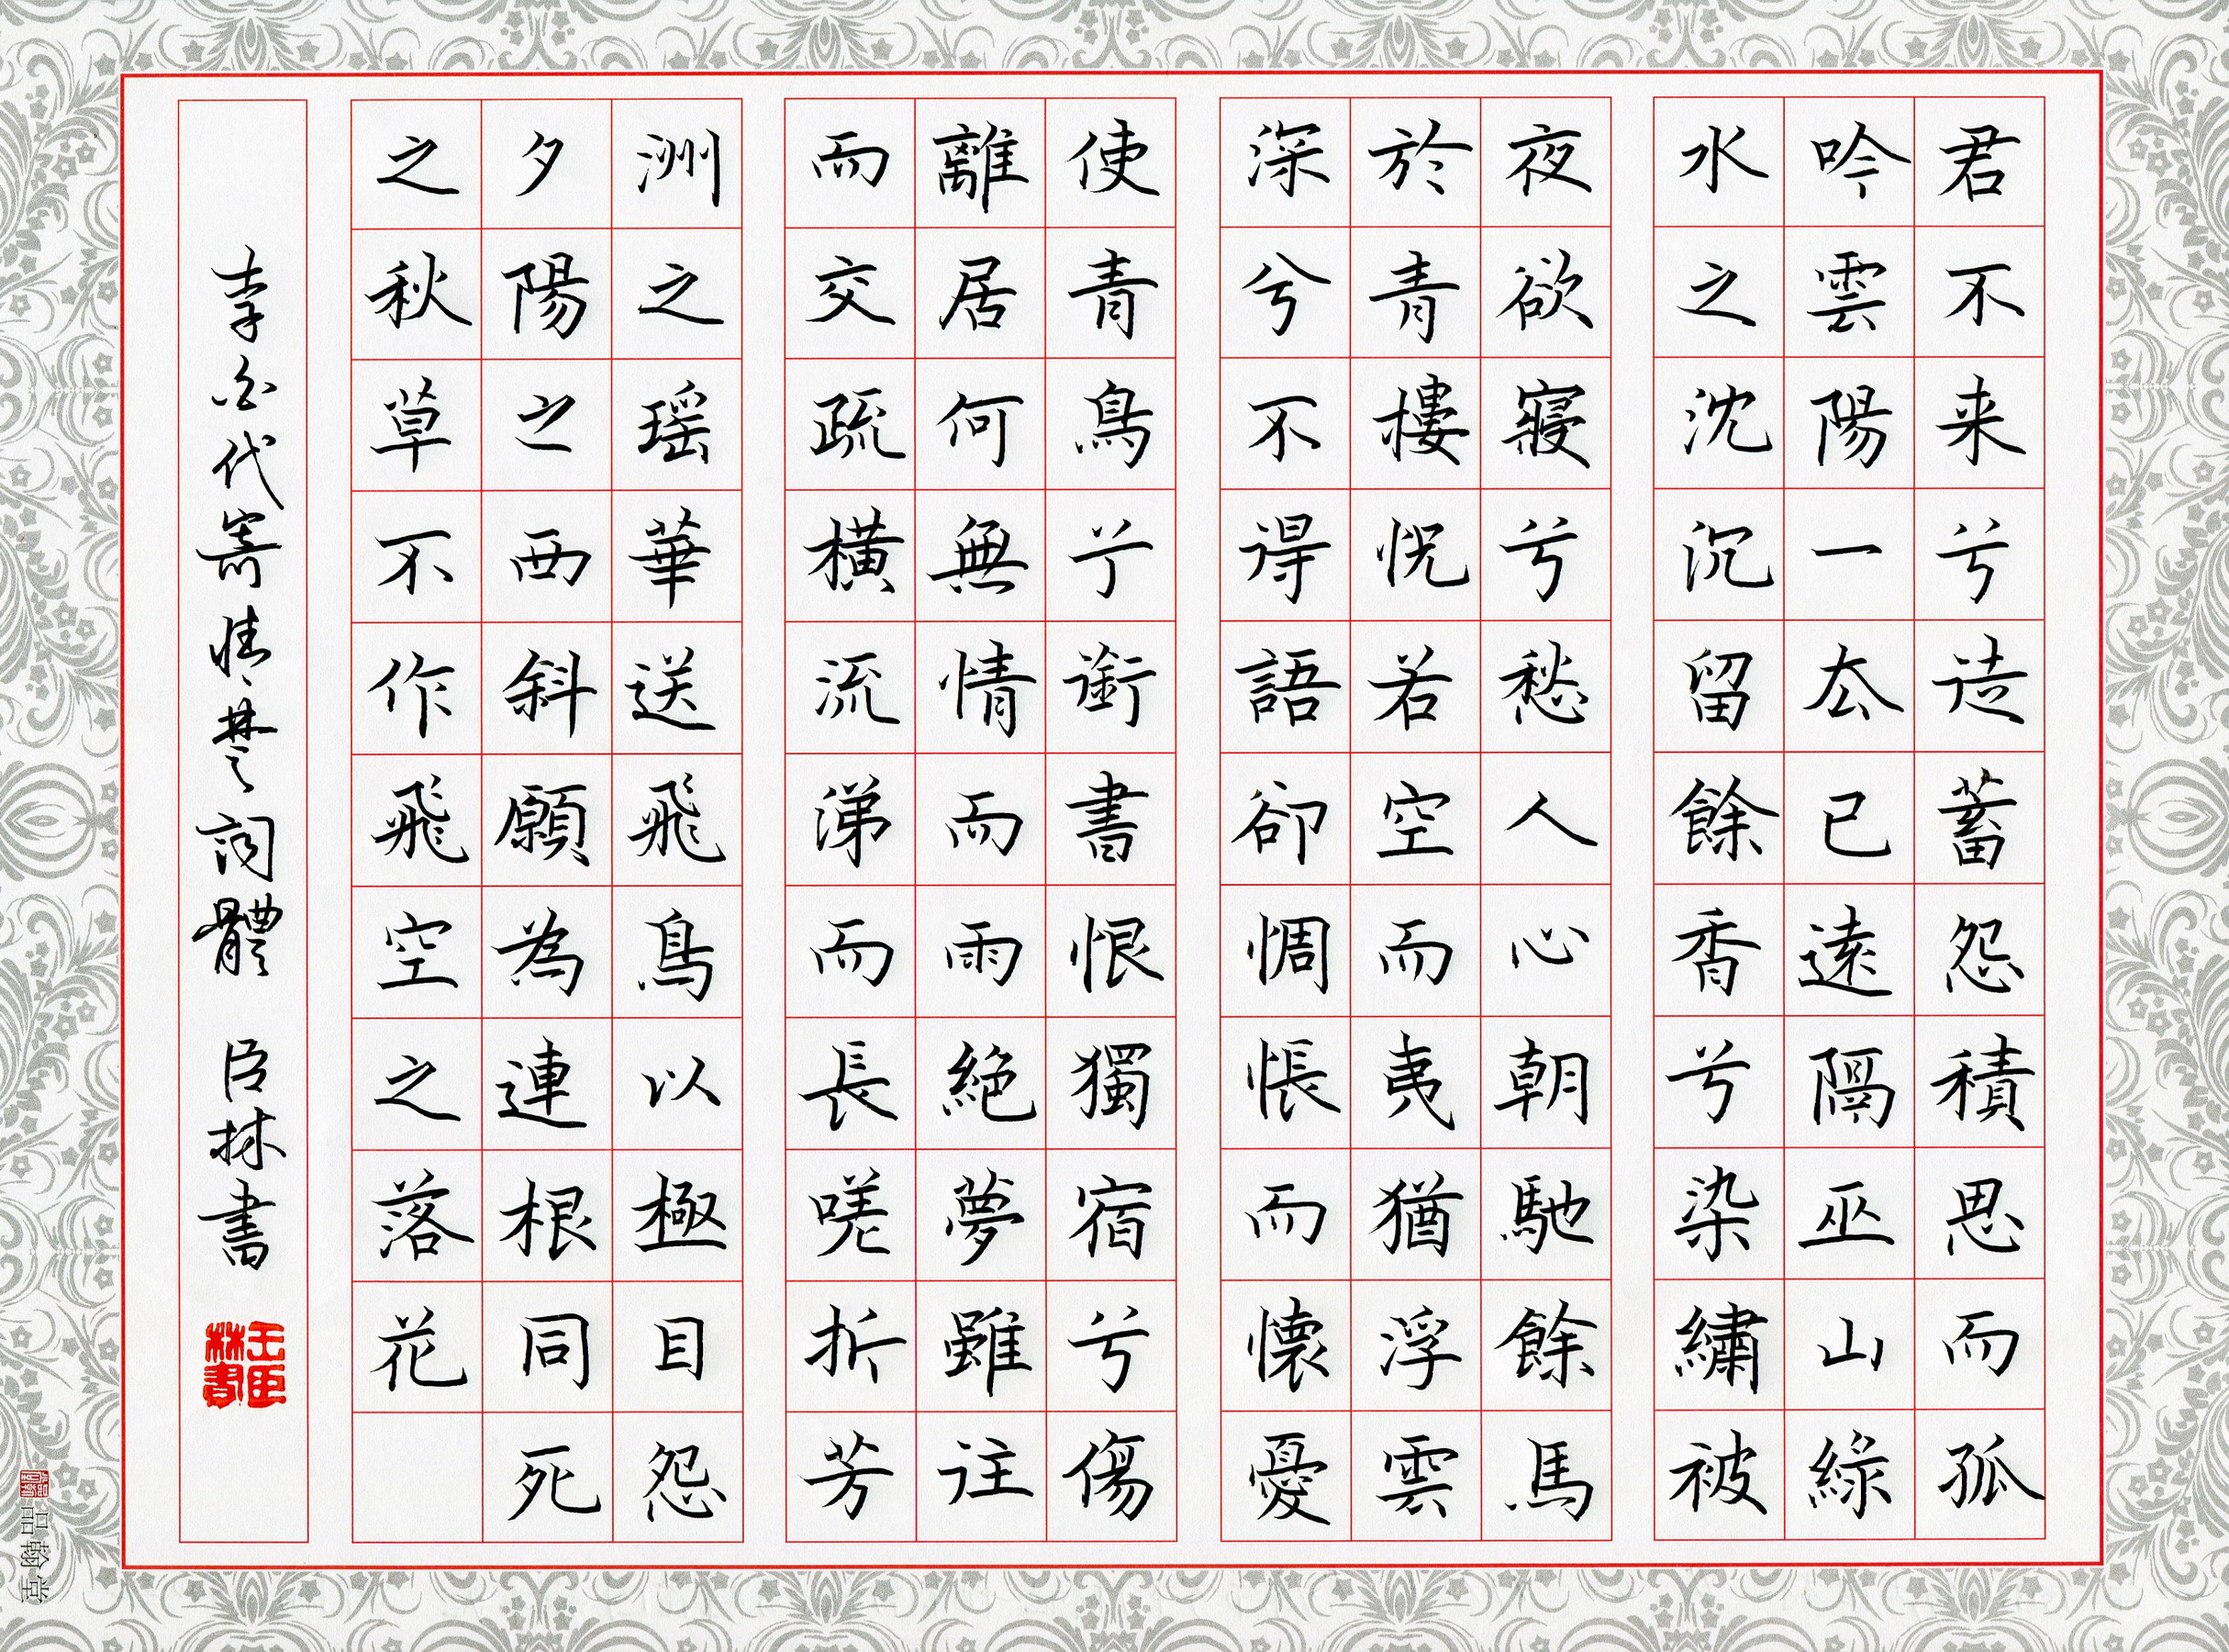 君不来兮徒蓄怨積思而孤
吟雲陽一去已遠隔巫山綠
水之沈沉留餘香兮染繡被
夜欲寢兮愁人心朝馳餘馬
於青樓怳若空而夷猶浮雲
深兮不得語卻惆悵而懷憂
使青鳥兮銜書恨獨宿兮傷
離居何無情而雨絶夢雖往
而交疏橫流涕而長嗟折芳
洲之瑶華送飛鳥以極目怨
夕陽之西斜願為連根同死
之秋草不作飛空之落花
李白代寄情楚詞體 臣林書
王臣林書
品翰堂